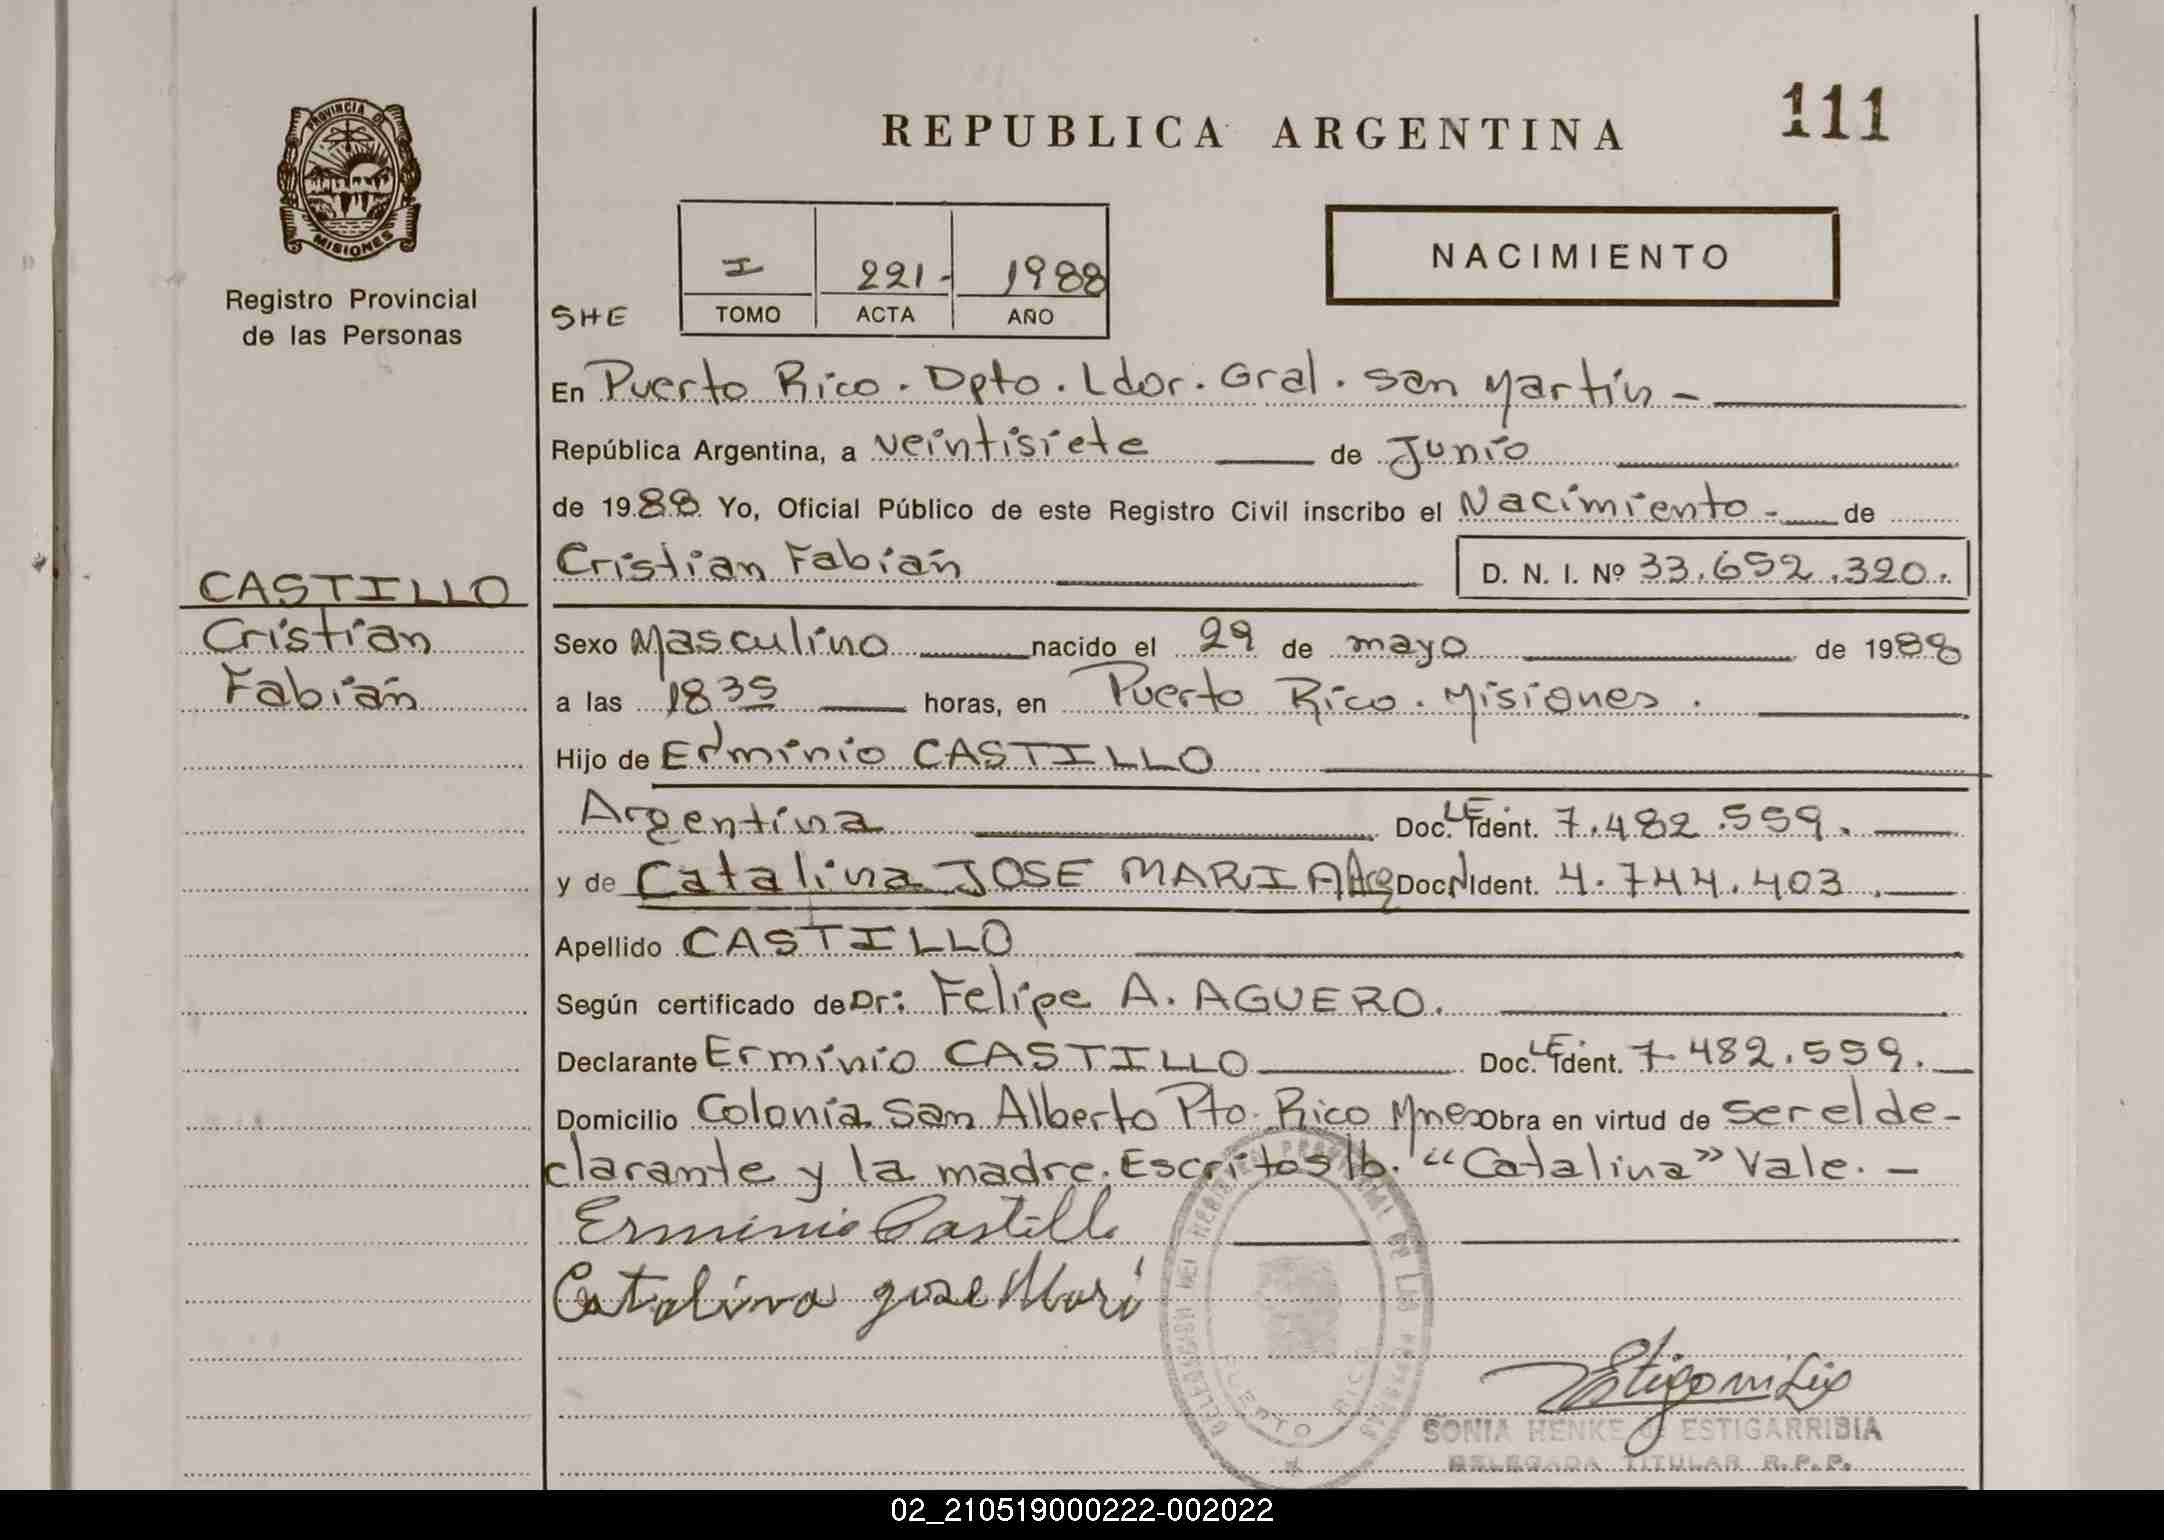 111
PROVINCIA DE
MISIONES
Registro Provincial
de las Personas
REPUBLICA ARGENTINA
NACIMIENTO
I 221- 1988
TOMO ACTA AÑO
SHE
En Puerto Rico. Dpto. Ldor. Gral. San Martín -
República Argentina, a veintisiete de Junio
de 1988 Yo, Oficial Público de este Registro Civil inscribo el Nacimiento - de
Cristian Fabián D. N. I. Nº 33.652.320.
CASTILLO
Cristian
Fabián
Sexo Masculino nacido el 29 de mayo de 1988
a las 18 35 horas, en Puerto Rico. Misiones.
Hijo de Erminio CASTILLO
Argentina Doc. LE Ident. 7.482.559.
y de Catalina JOSE MARIA Arg Doc. Ident. 4.744.403.
Apellido CASTILLO
Según certificado de Dr: Felipe A. AGUERO.
Declarante Erminio CASTILLO Doc. LE Ident. 7.482.559.
Domicilio Colonia San Alberto Pto. Rico Mnes Obra en virtud de ser el de-
clarante y la madre. Escritos lb. "Catalina" Vale. -
Erminio Castillo
Catalina jose Mari
PUERTO RICO
SONIA HENKE de ESTIGARRIBIA
DELEGADA TITULAR R.P.P.
02_210519000222-002022